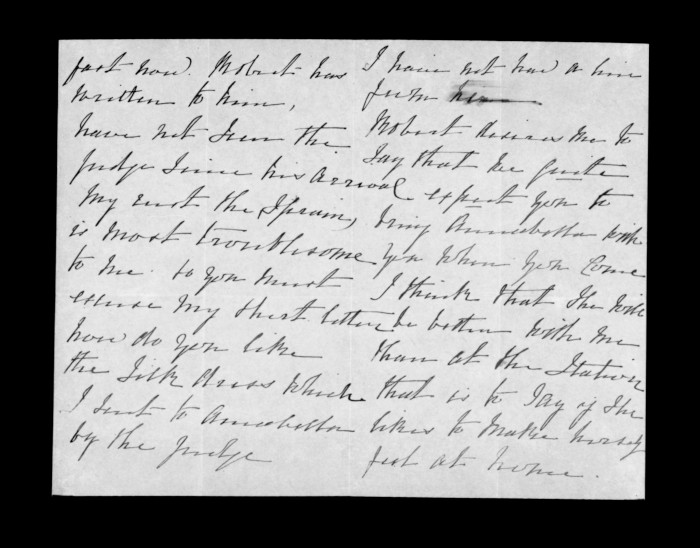 fast now. Robert has
written to him,
have not seen the
judge since his arrival
My rist the Sprain,
is most troublesome
to me. so you must
excuse my short letter
how do you like
the Silk dress which
I sent to Annabella
by the judge
I have not had a line
from her
Robert desires me to
say that he quite
expect you to
bring Annabella with
you when you come
I think that she will
be better with me
than at the Station
that is to say if she
likes to make herself
feel at home.